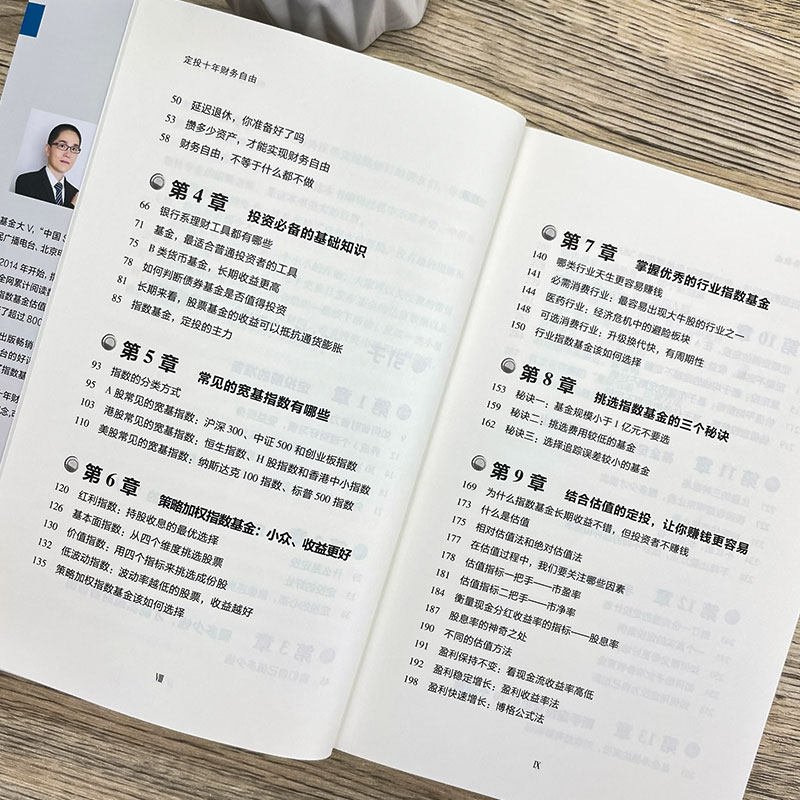 定投十年财务自由
50 延迟退休，你准备好了吗
53 攒多少资产，才能实现财务自由
58 财务自由，不等于什么都不做
第4章 投资必备的基础知识
66 银行系理财工具都有哪些
71 基金，最适合普通投资者的工具
75 B类货币基金，长期收益更高
78 如何判断债券基金是否值得投资
81 长期来看，股票基金的收益可以抵抗通货膨胀
85 指数基金，定投的主力
第5章 常见的宽基指数有哪些
93 指数的分类方式
95 A股常见的宽基指数：沪深300、中证500和创业板指数
103 港股常见的宽基指数：恒生指数、H股指数和香港中小指数
110 美股常见的宽基指数：纳斯达克100指数、标普500指数
第6章 策略加权指数基金：小众、收益更好
120 红利指数：持股收息的最优选择
126 基本面指数：从四个维度挑选股票
130 价值指数：用四个指标来挑选成份股
132 低波动指数：波动率越低的股票，收益越好
135 策略加权指数基金该如何选择
VIII
第7章 掌握优秀的行业指数基金
140 哪类行业天生更容易赚钱
141 必需消费行业：最容易出现大牛股的行业之一
144 医药行业：经济危机中的避险板块
148 可选消费行业：升级换代快，有周期性
150 行业指数基金该如何选择
第8章 挑选指数基金的三个秘诀
153 秘诀一：基金规模小于1亿元不要选
159 秘诀二：挑选费用较低的基金
162 秘诀三：选择追踪误差较小的基金
第9章 结合估值的定投，让你赚钱更容易
169 为什么指数基金长期收益不错，但投资者不赚钱
173 什么是估值
175 相对估值法和绝对估值法
177 在估值过程中，我们要关注哪些因素
178 估值指标一把手——市盈率
181 估值指标二把手——市净率
184 衡量现金分红收益率的指标——股息率
187 股息率的神奇之处
190 不同的估值方法
191 盈利保持不变：看现金流收益率高低
192 盈利稳定增长：盈利收益率法
198 盈利快速增长：博格公式法
IX
基金大V，“中国
广播电台、北京
2014年开始，
全网累计阅读
指数基金估值
了超过800
出版畅销
台的好